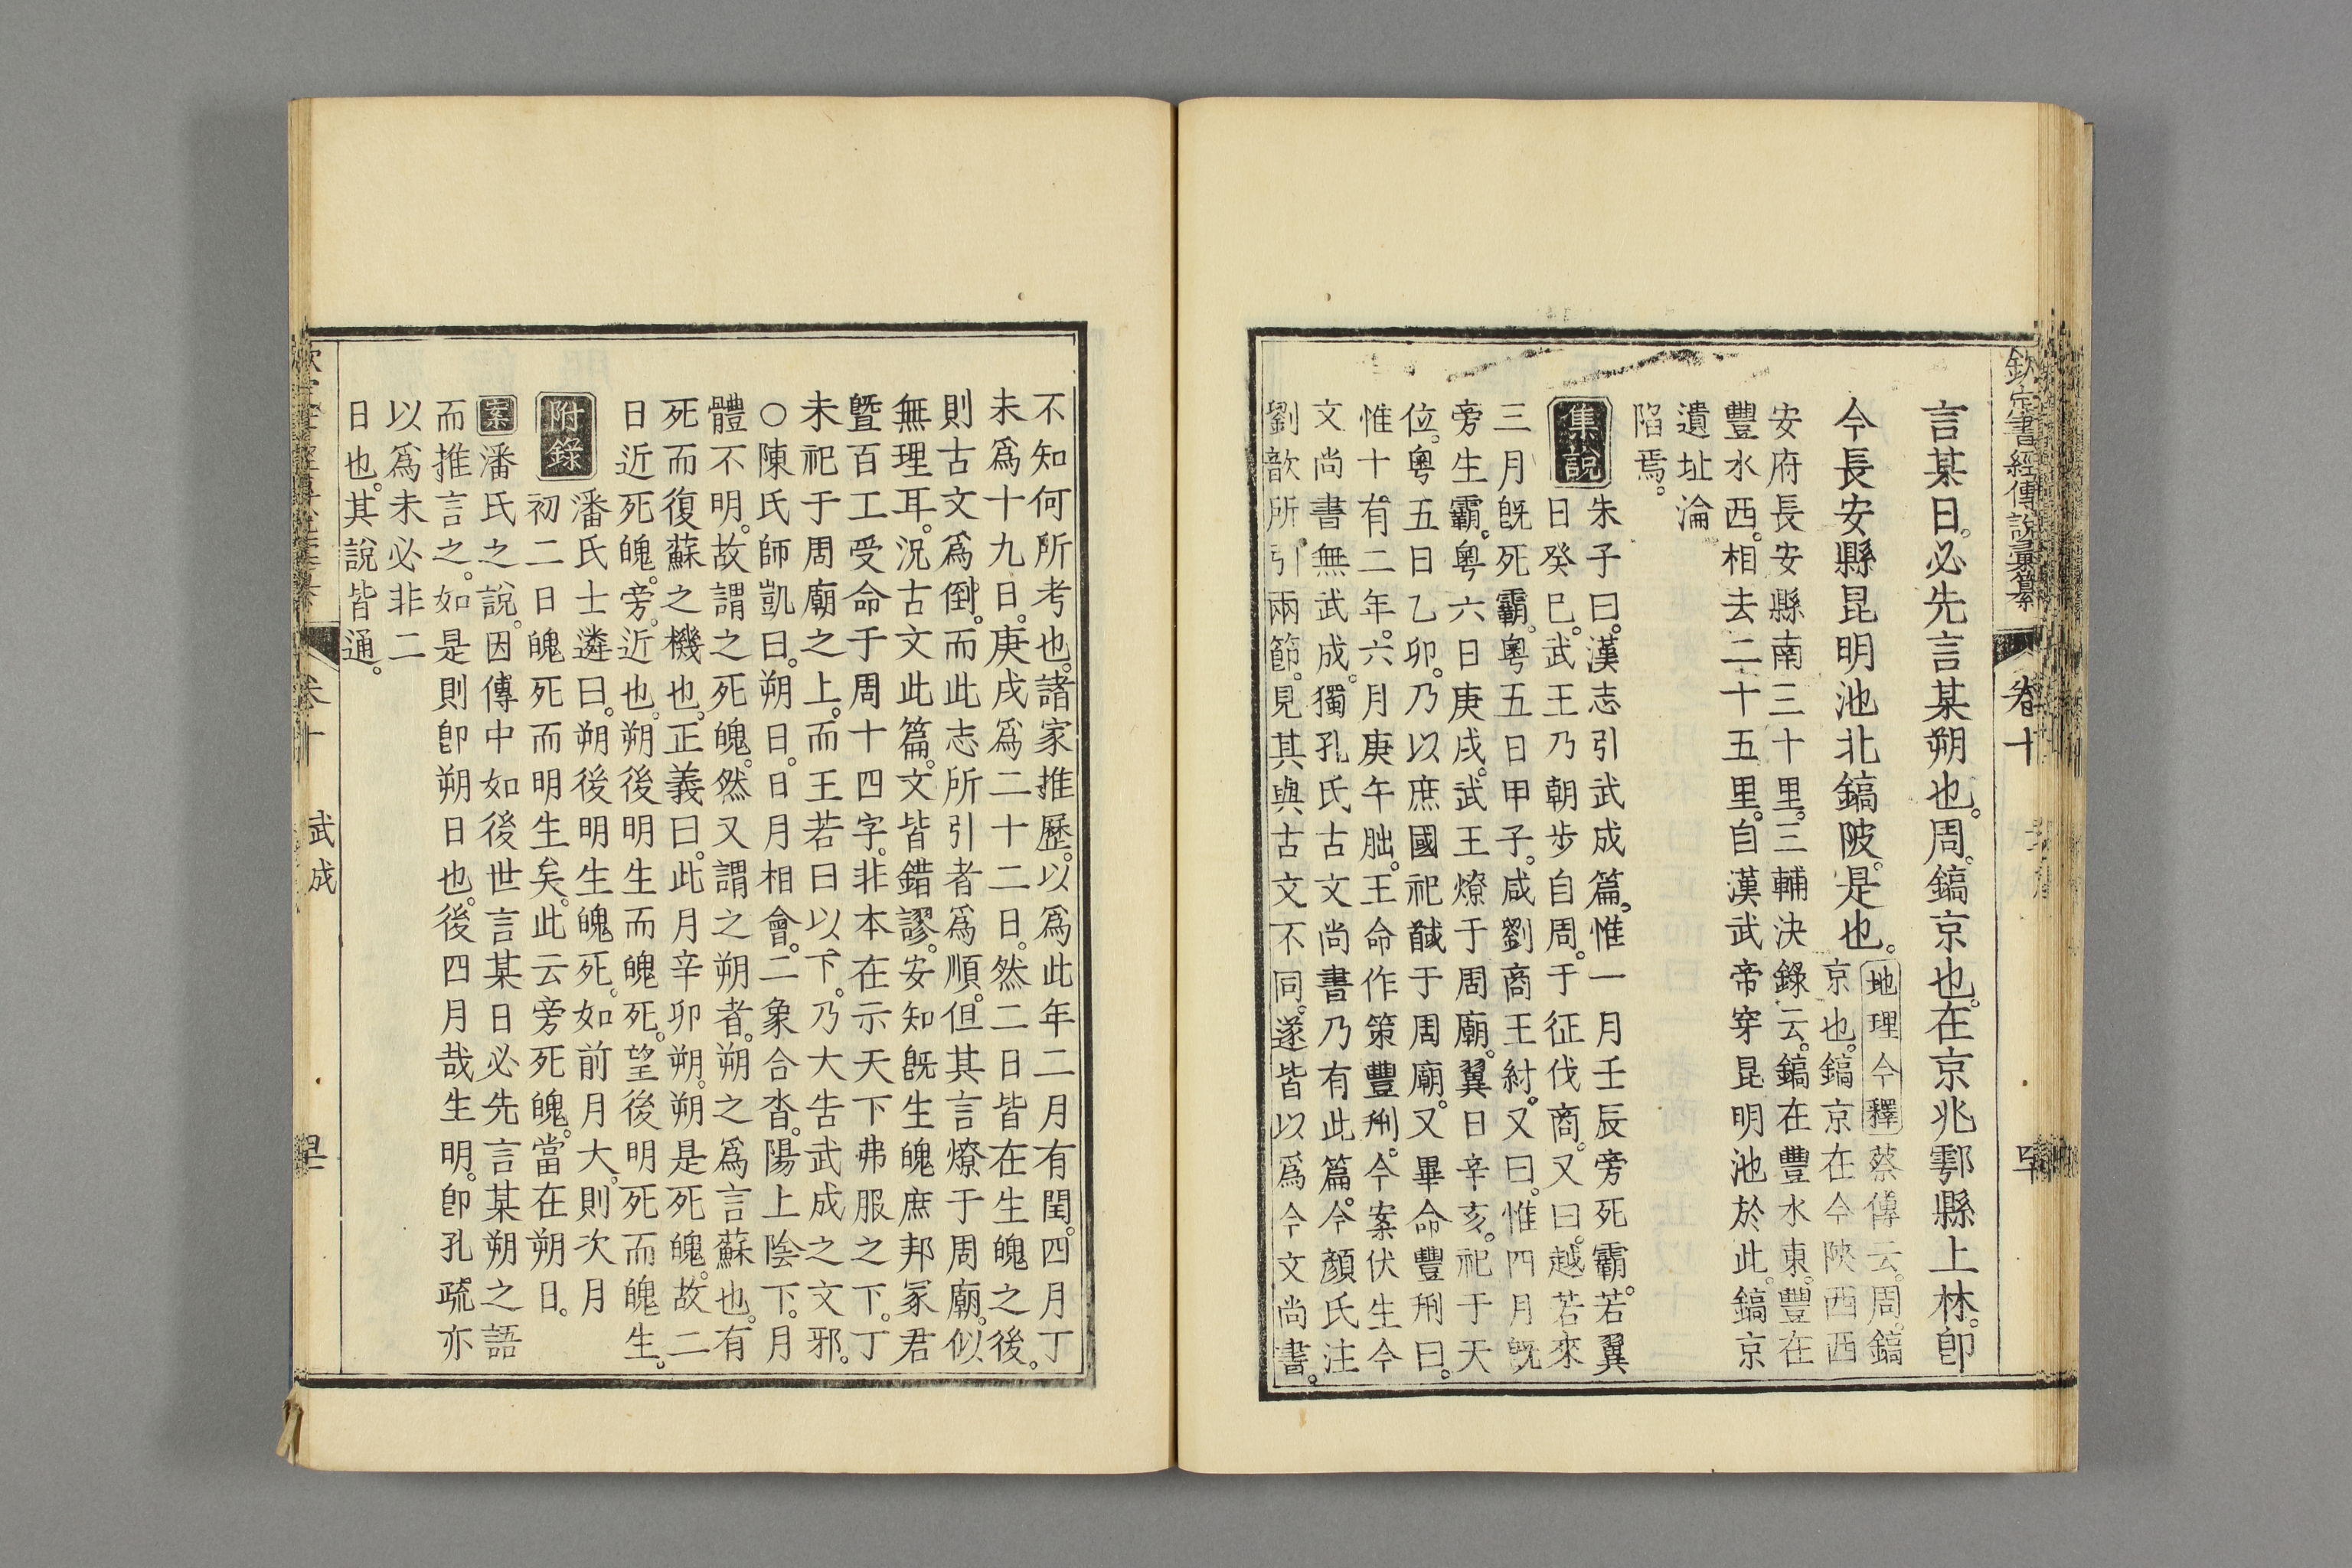 欽定書經傳說彙纂 卷十
言某日。必先言某朔也。周。鎬京也。在京兆鄠縣上林。卽
今長安縣昆明池北鎬陂。是也。
地理今釋 蔡傳云。周。鎬
京也。鎬京在今陝西西
安府長安縣南三十里。三輔決錄云。鎬在豐水東。豐在
豐水西。相去二十五里。自漢武帝穿昆明池於此。鎬京
遺址淪
陷焉。
集說 朱子曰。漢志引武成篇。惟一月壬辰旁死霸。若翼
日癸巳。武王乃朝步自周。于征伐商。又曰。越若來
三月旣死霸。粵五日甲子。咸劉商王紂。又曰。惟四月旣
旁生霸。粵六日庚戌。武王燎于周廟。翼日辛亥。祀于天
位。粵五日乙卯。乃以庶國祀馘于周廟。又畢命豐刑曰。
惟十有二年。六月庚午朏。王命作策豐刑。今案伏生今
文尚書無武成。獨孔氏古文尚書乃有此篇。今顏氏注
劉歆所引兩節。見其與古文不同。遂皆以爲今文尚書。
不知何所考也。諸家推歷。以爲此年二月有閏。四月丁
未爲十九日。庚戌爲二十二日。然二日皆在生魄之後。
則古文爲倒。而此志所引者爲順。但其言燎于周廟。似
無理耳。況古文此篇。文皆錯謬。安知旣生魄庶邦冢君
暨百工受命于周十四字。非本在示天下弗服之下。丁
未祀于周廟之上。而王若曰以下。乃大告武成之文邪。
○陳氏師凱曰。朔日。日月相會。二象合沓。陽上陰下。月
體不明。故謂之死魄。然又謂之朔者。朔之爲言蘇也。有
死而復蘇之機也。正義曰。此月辛卯朔。朔是死魄。故二
日近死魄。旁。近也。朔後明生而魄死。望後明死而魄生。
附錄 潘氏士遴曰。朔後明生魄死。如前月大。則次月
初二日魄死而明生矣。此云旁死魄。當在朔日。
案 潘氏之說。因傳中如後世言某日必先言某朔之語
而推言之。如是則卽朔日也。後四月哉生明。卽孔疏亦
以爲未必非二
日也。其說皆通。
卷十 武成